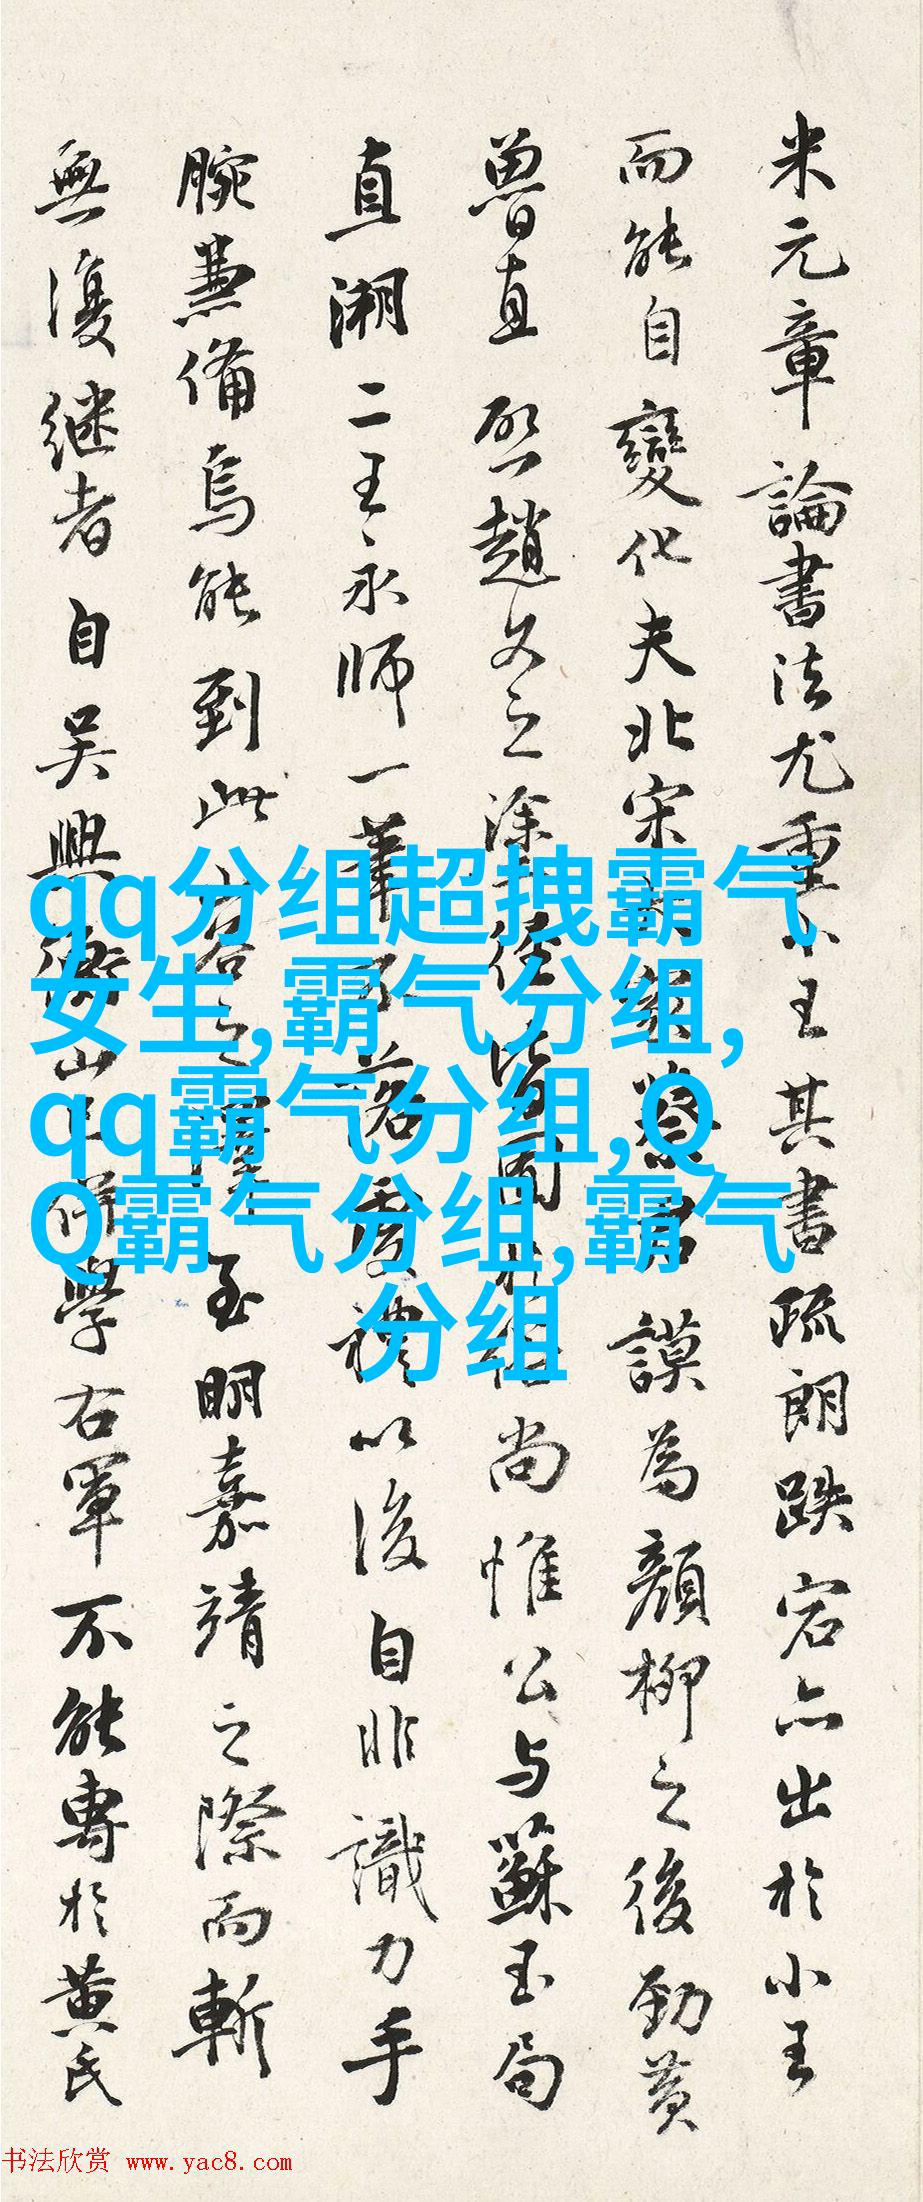 米元章論書法尤重小王其書疏朗跌宕亦出於小王
而能自變化夫北宋蔡君謨為顏柳之後勁黃
魯直啓趙文之塗徑皆尚惟公與蘇玉局
直溯二王永師一筆不落唐以後自非識力手
腕兼備烏能到此至明嘉靖之際而斬
無復継者自吴興衡山學右軍不能專於黄氏
qq分组超拽霸气
女生,霸气分组,
qq霸气分组,Q
Q霸气分组,霸气
分组
书法欣赏 www.yac8.com